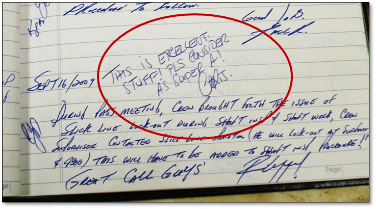 Procedure to follow.
Good Job.
THIS IS EXELLENT
STUFF! PLS CONSIDER
AS SUPER A!
SEPT 16/2009
DURING PAST MEETING, CREW BROUGHT FORTH THE ISSUE OF
SLICK LINE LOCK-OUT DURING SHAFT INSP & SHAFT WORK, CREW
SUPERVISOR CONTACTED SLICK LINE (HE WILL LOCK-OUT @
THIS WILL HAVE TO BE ADDED TO SHAFT INSP PROCEDURE!!
GREAT CALL GUYS!
Page